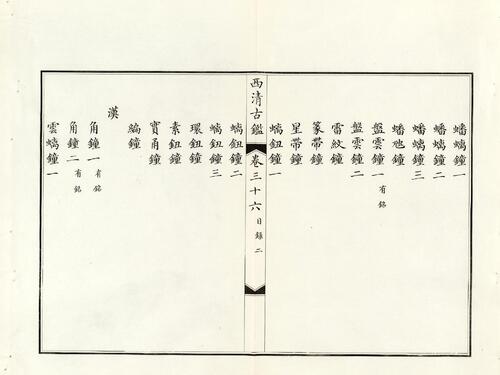 蟠螭鐘一
蟠螭鐘二
蟠螭鐘三
蟠虺鐘
盤雲鐘一 有銘
盤雲鐘二
雷紋鐘
篆帶鐘
星帶鐘
螭鈕鐘一
西清古鑑 卷三十六 目錄 二
螭鈕鐘二
螭鈕鐘三
環鈕鐘
素鈕鐘
寶甬鐘
編鐘
漢
角鐘一 有銘
角鐘二 有銘
雲螭鐘一